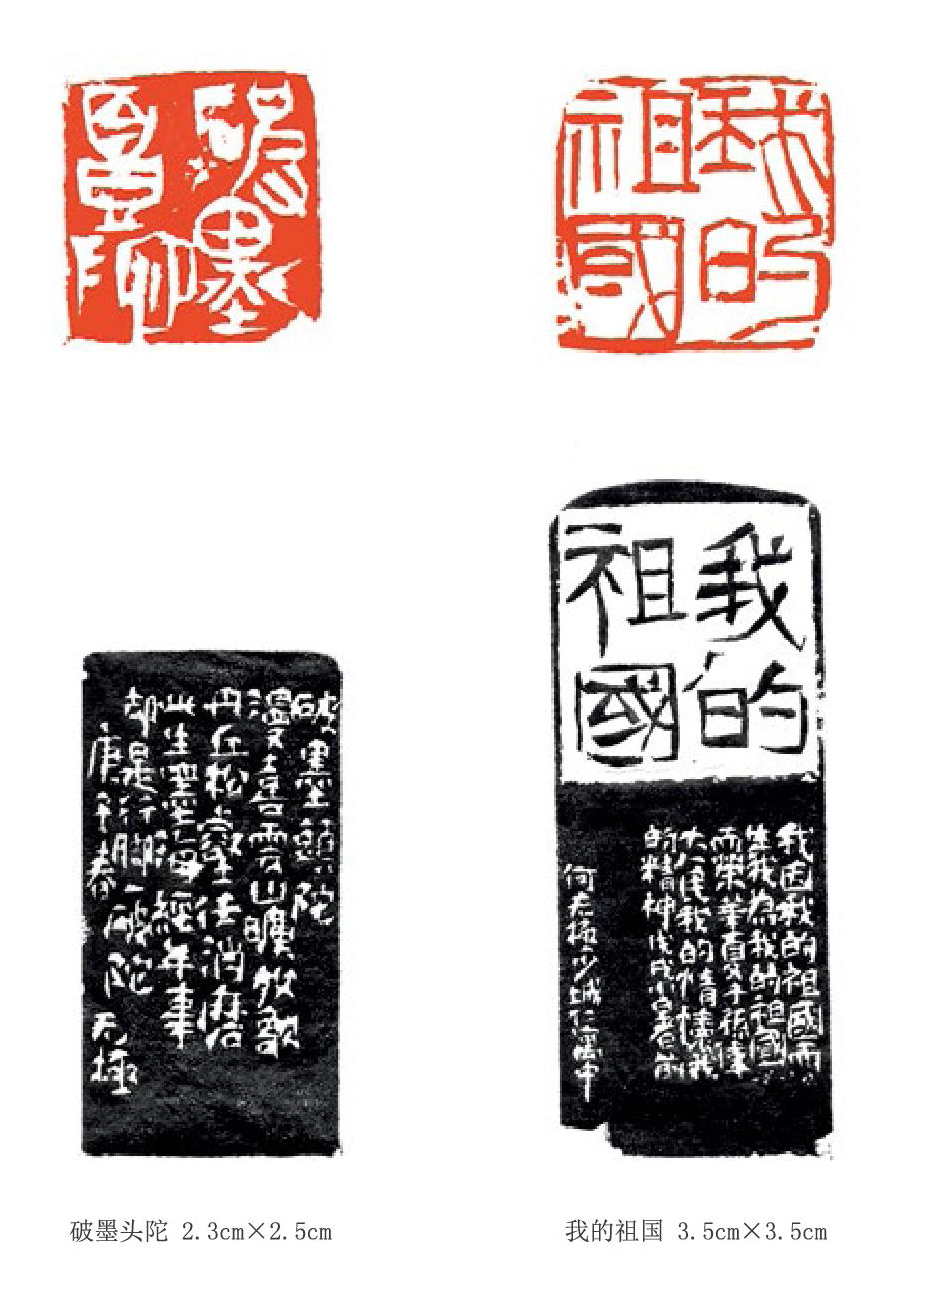 破墨
頭陀
我的
祖國
破墨頭陀
漫言雲山曠放歌
丹丘松壑任消磨
此生墨海經年事
却是行脚一破陀
庚子春
无極
我的
祖國
我因我的祖國而
生我为我的祖國
而榮華夏千秋
大人民我的情懷我
的精神戊戌小暑前
何无極少城仁寓中
破墨头陀 2.3cm×2.5cm
我的祖国 3.5cm×3.5cm